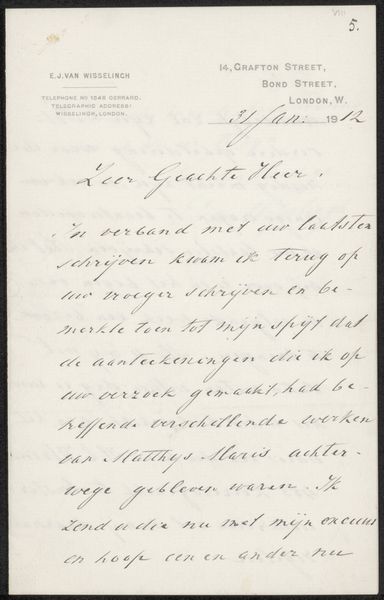 VIII
5.
E.J. VAN WISSELINGH
TELEPHONE NO 1848 GERRARD.
TELEGRAPHIC ADDRESS:
WISSELINGH, LONDON.
14, GRAFTON STREET,
BOND STREET,
LONDON, W.
31 Jan: 1912
Zeer Geachte Heer,
In verband met uw laatste
schrijven kwam ik terug op
uw vroeger schrijven en be-
merkte toen tot mijn spijt dat
de aanteekeningen die ik op
uw verzoek gemaakt, had be-
treffende verschillende werken
van Matthijs Maris achter-
wege gebleven waren. Ik
zend u die nu met mijn excuus
en hoop een en ander nu